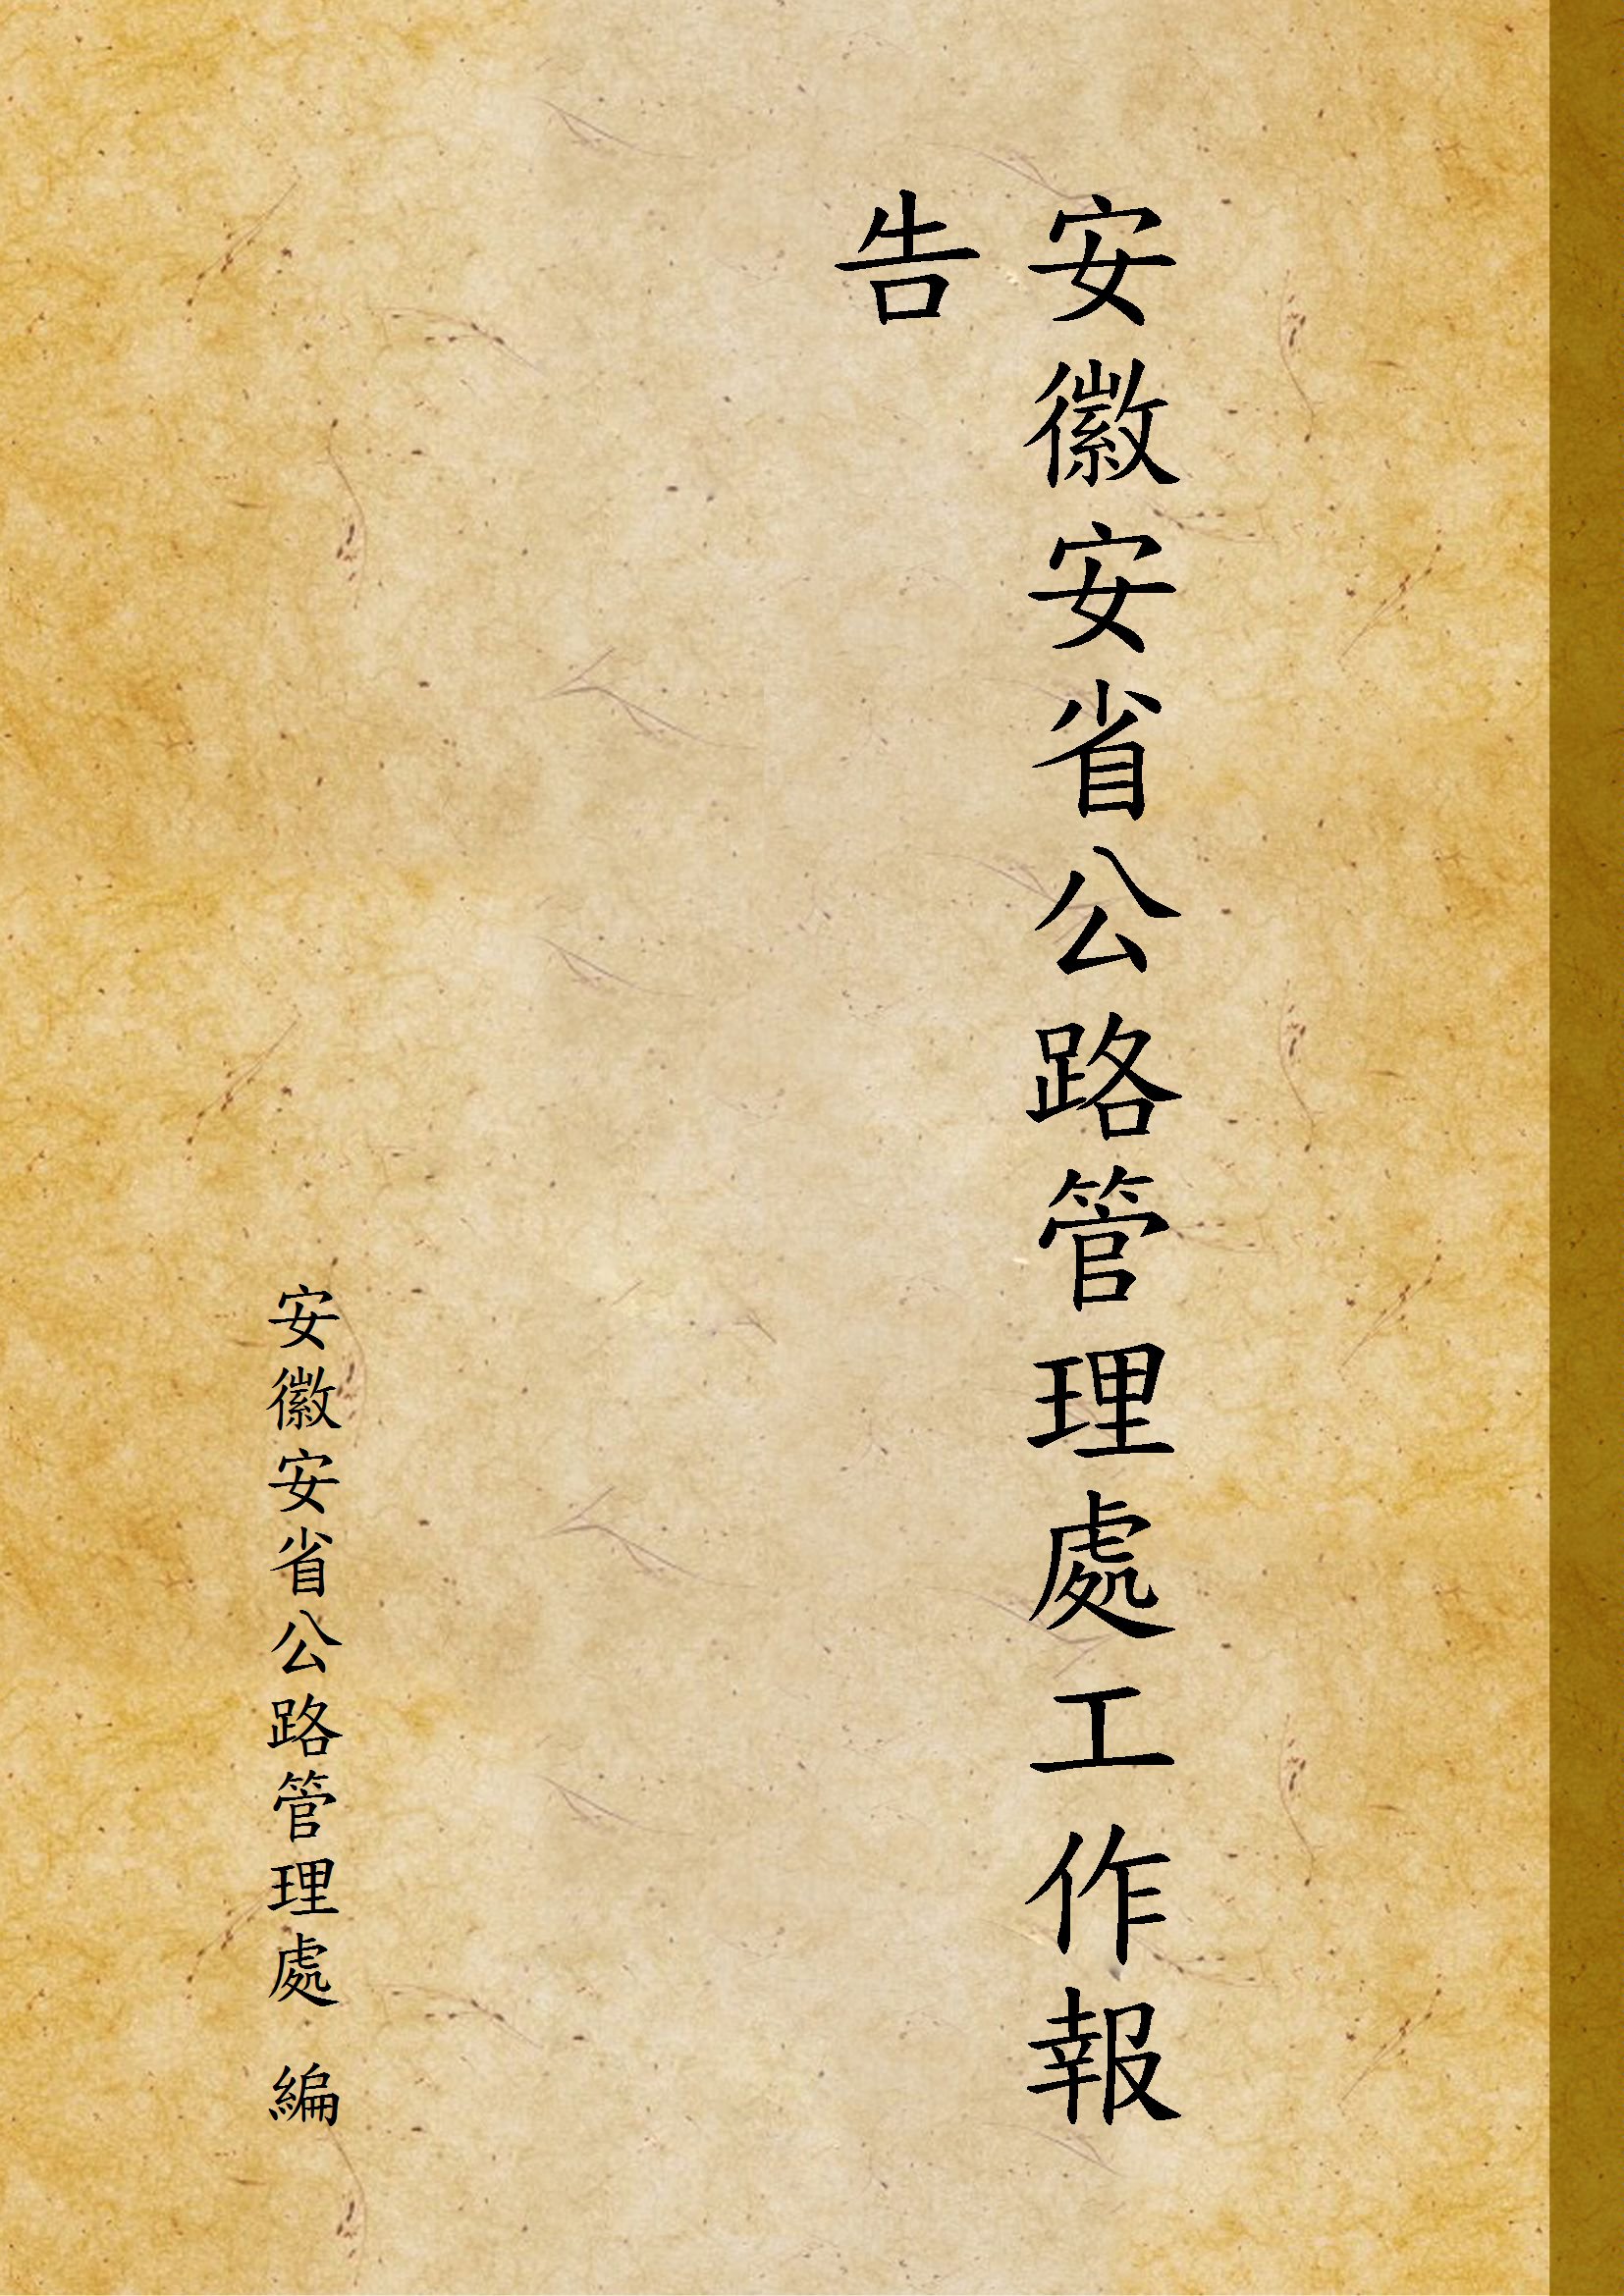 安徽安省公路管理處工作報
告
安徽安省公路管理處 編